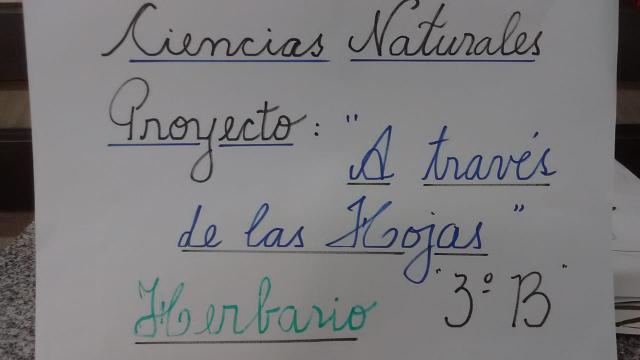 Ciencias Naturales
Proyecto: "A través
de las Hojas"
Herbario "3º B"